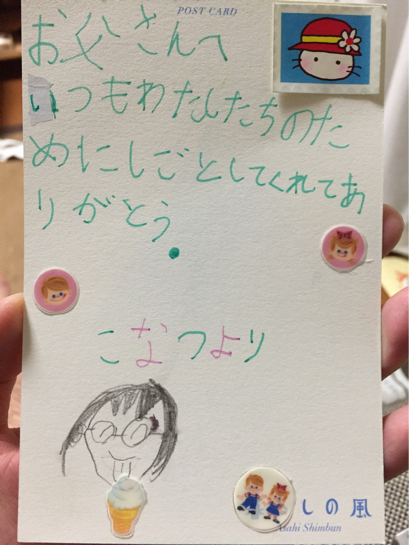 POST CARD
お父さんへ
いつもわたしたちのた
めにしごとしてくれてあ
りがとう。
こなつより
しの風
Asahi Shimbun